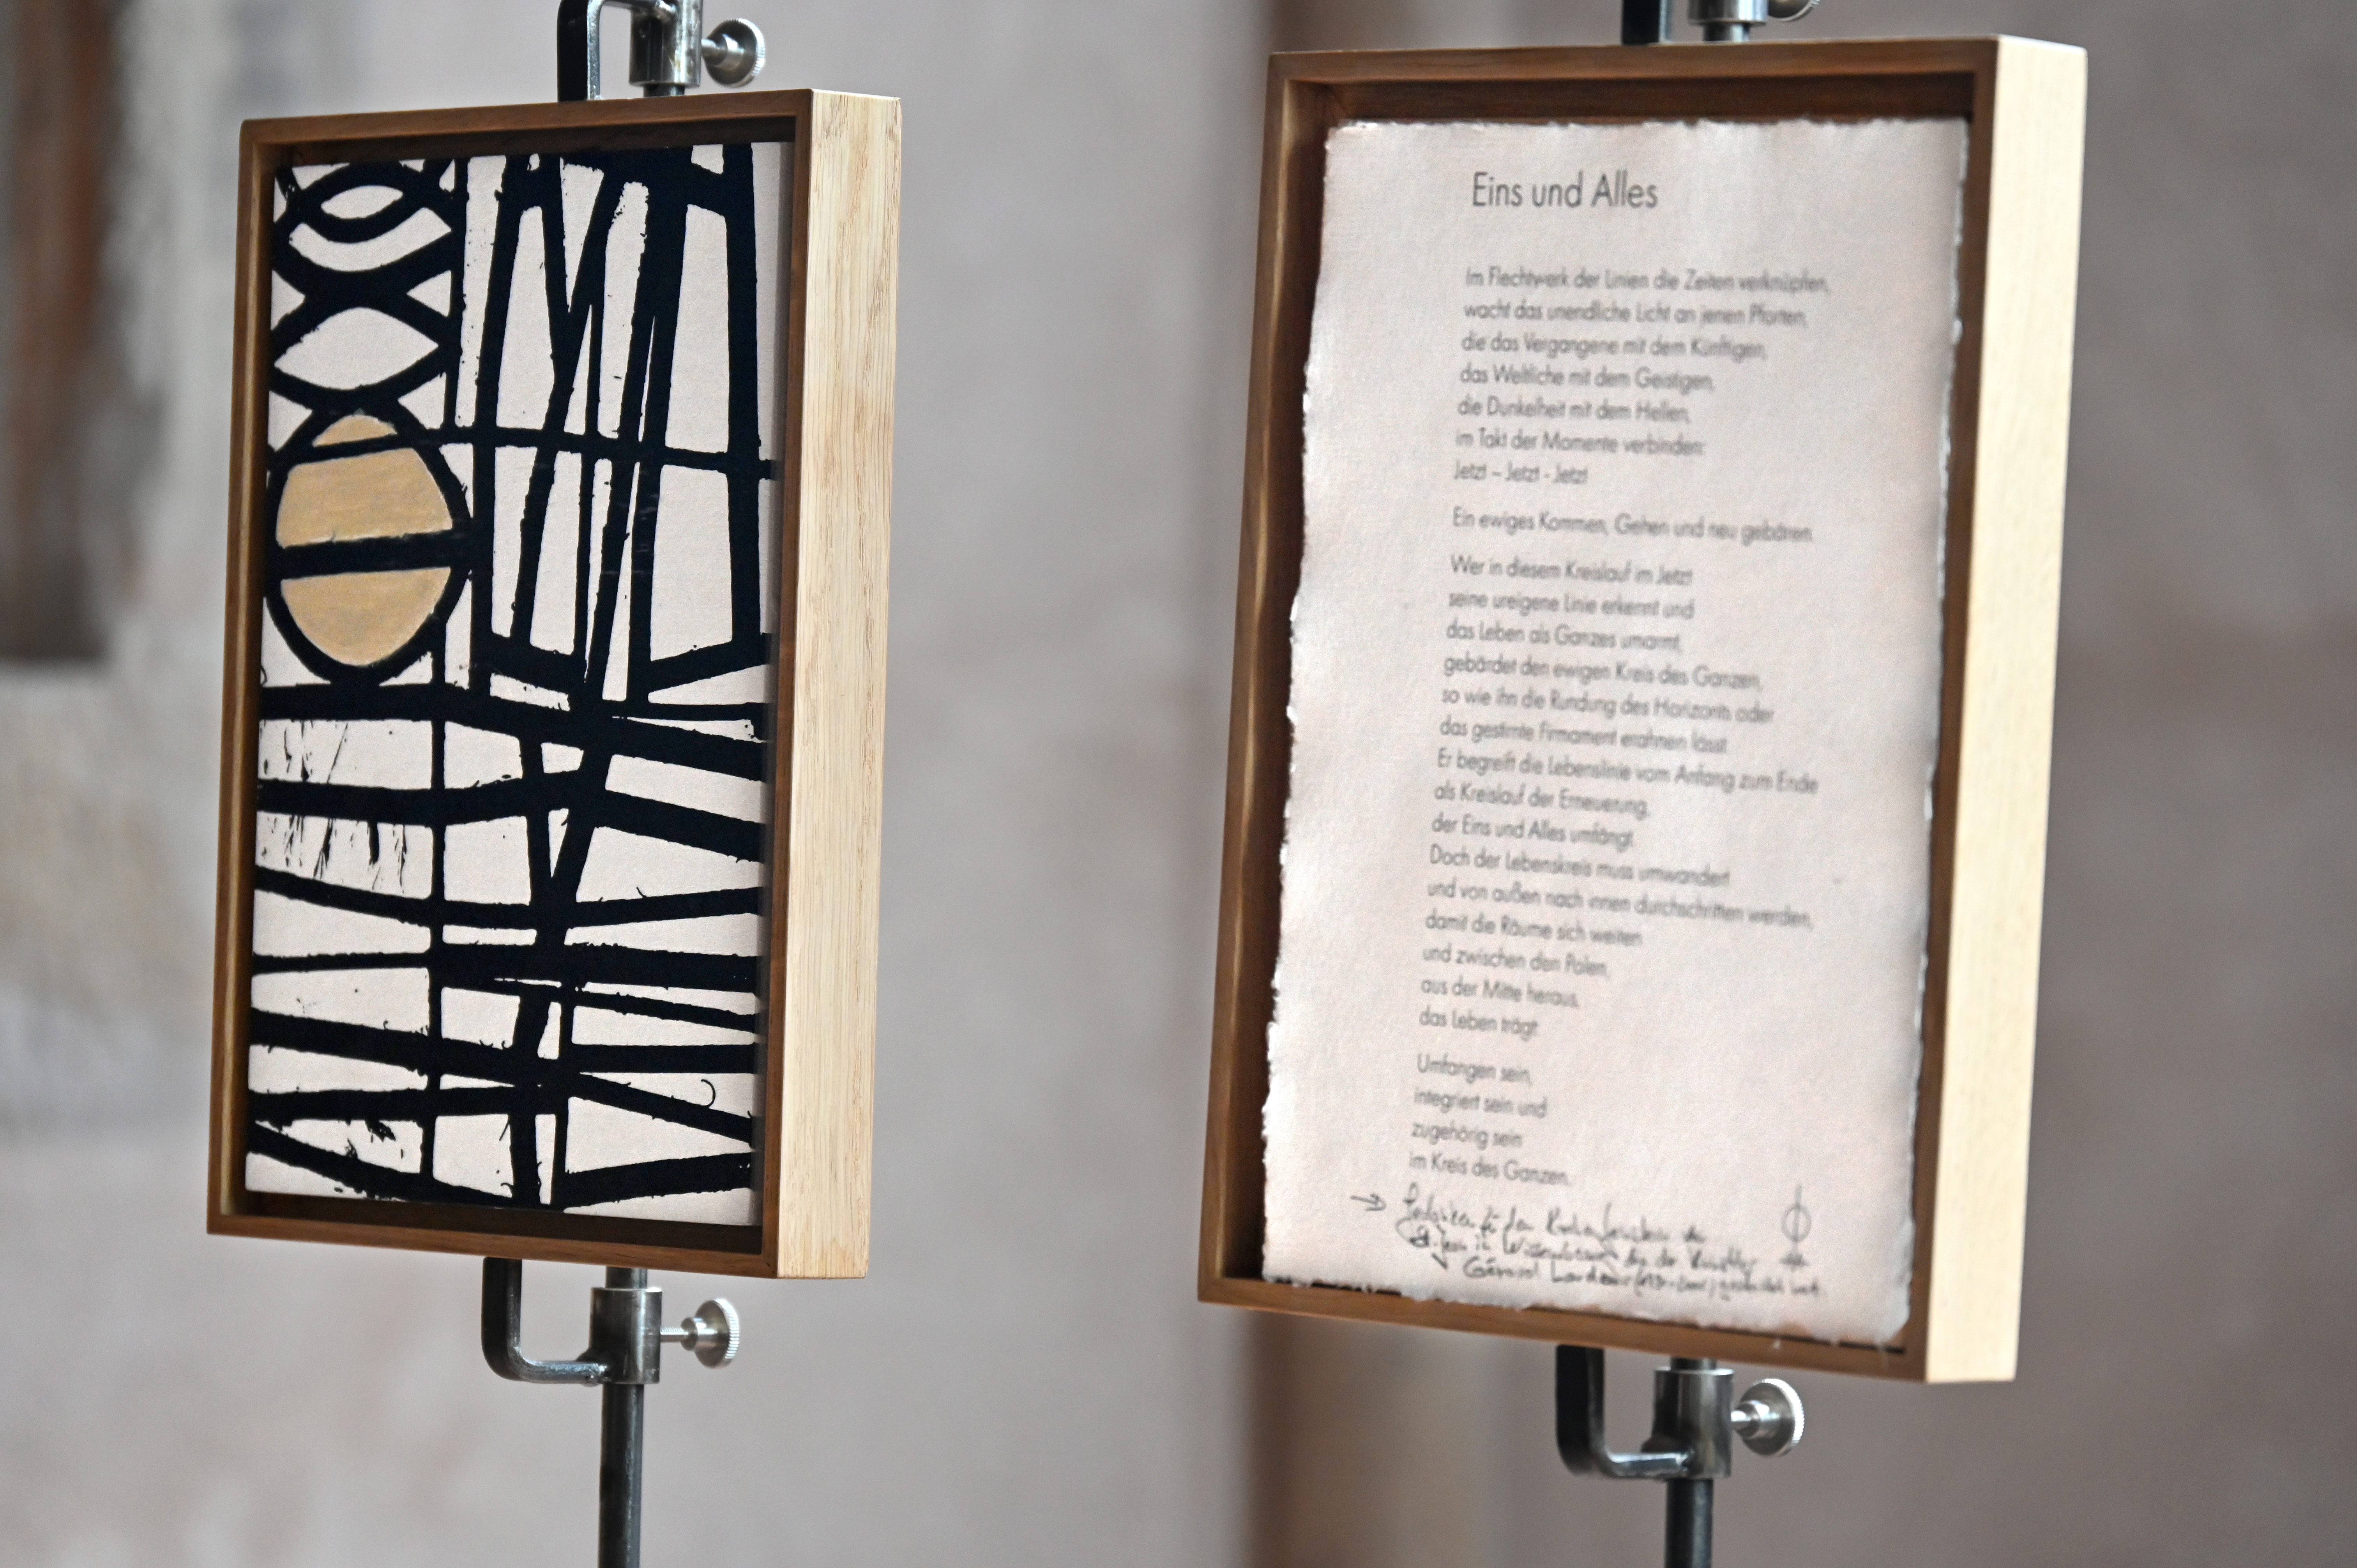 Eins und Alles
Im Flechtwerk der Linien die Zeiten verknüpfen,
wacht das unendliche Licht an jenen Pforten,
die das Vergangene mit dem Künftigen,
das Weltliche mit dem Geistigen,
die Dunkelheit mit dem Hellen,
im Takt der Momente verbinden:
Jetzt – Jetzt - Jetzt
Ein ewiges Kommen, Gehen und neu gebären.
Wer in diesem Kreislauf im Jetzt
seine ureigene Linie erkennt und
das Leben als Ganzes umarmt,
gebärdet den ewigen Kreis des Ganzen,
so wie ihn die Rundung des Horizonts oder
das gestirnte Firmament erahnen lässt.
Er begreift die Lebenslinie vom Anfang zum Ende
als Kreislauf der Erneuerung,
der Eins und Alles umfängt.
Doch der Lebenskreis muss umwandert
und von außen nach innen durchschritten werden,
damit die Räume sich weiten
und zwischen den Polen,
aus der Mitte heraus,
das Leben trägt.
Umfangen sein,
integriert sein und
zugehörig sein
im Kreis des Ganzen.
den
der Künstler
Gérard